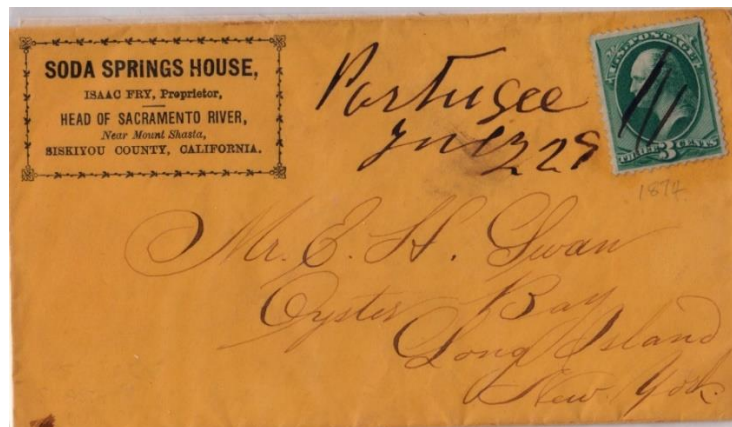 SODA SPRINGS HOUSE,
ISAAC FRY, Proprietor,
HEAD OF SACRAMENTO RIVER,
Near Mount Shasta,
SISKIYOU COUNTY, CALIFORNIA.
Portugee
July 29
U.S. POSTAGE
THREE 3 CENTS
1874
Mr. E. H. Swan
Oyster Bay
Long Island
New York